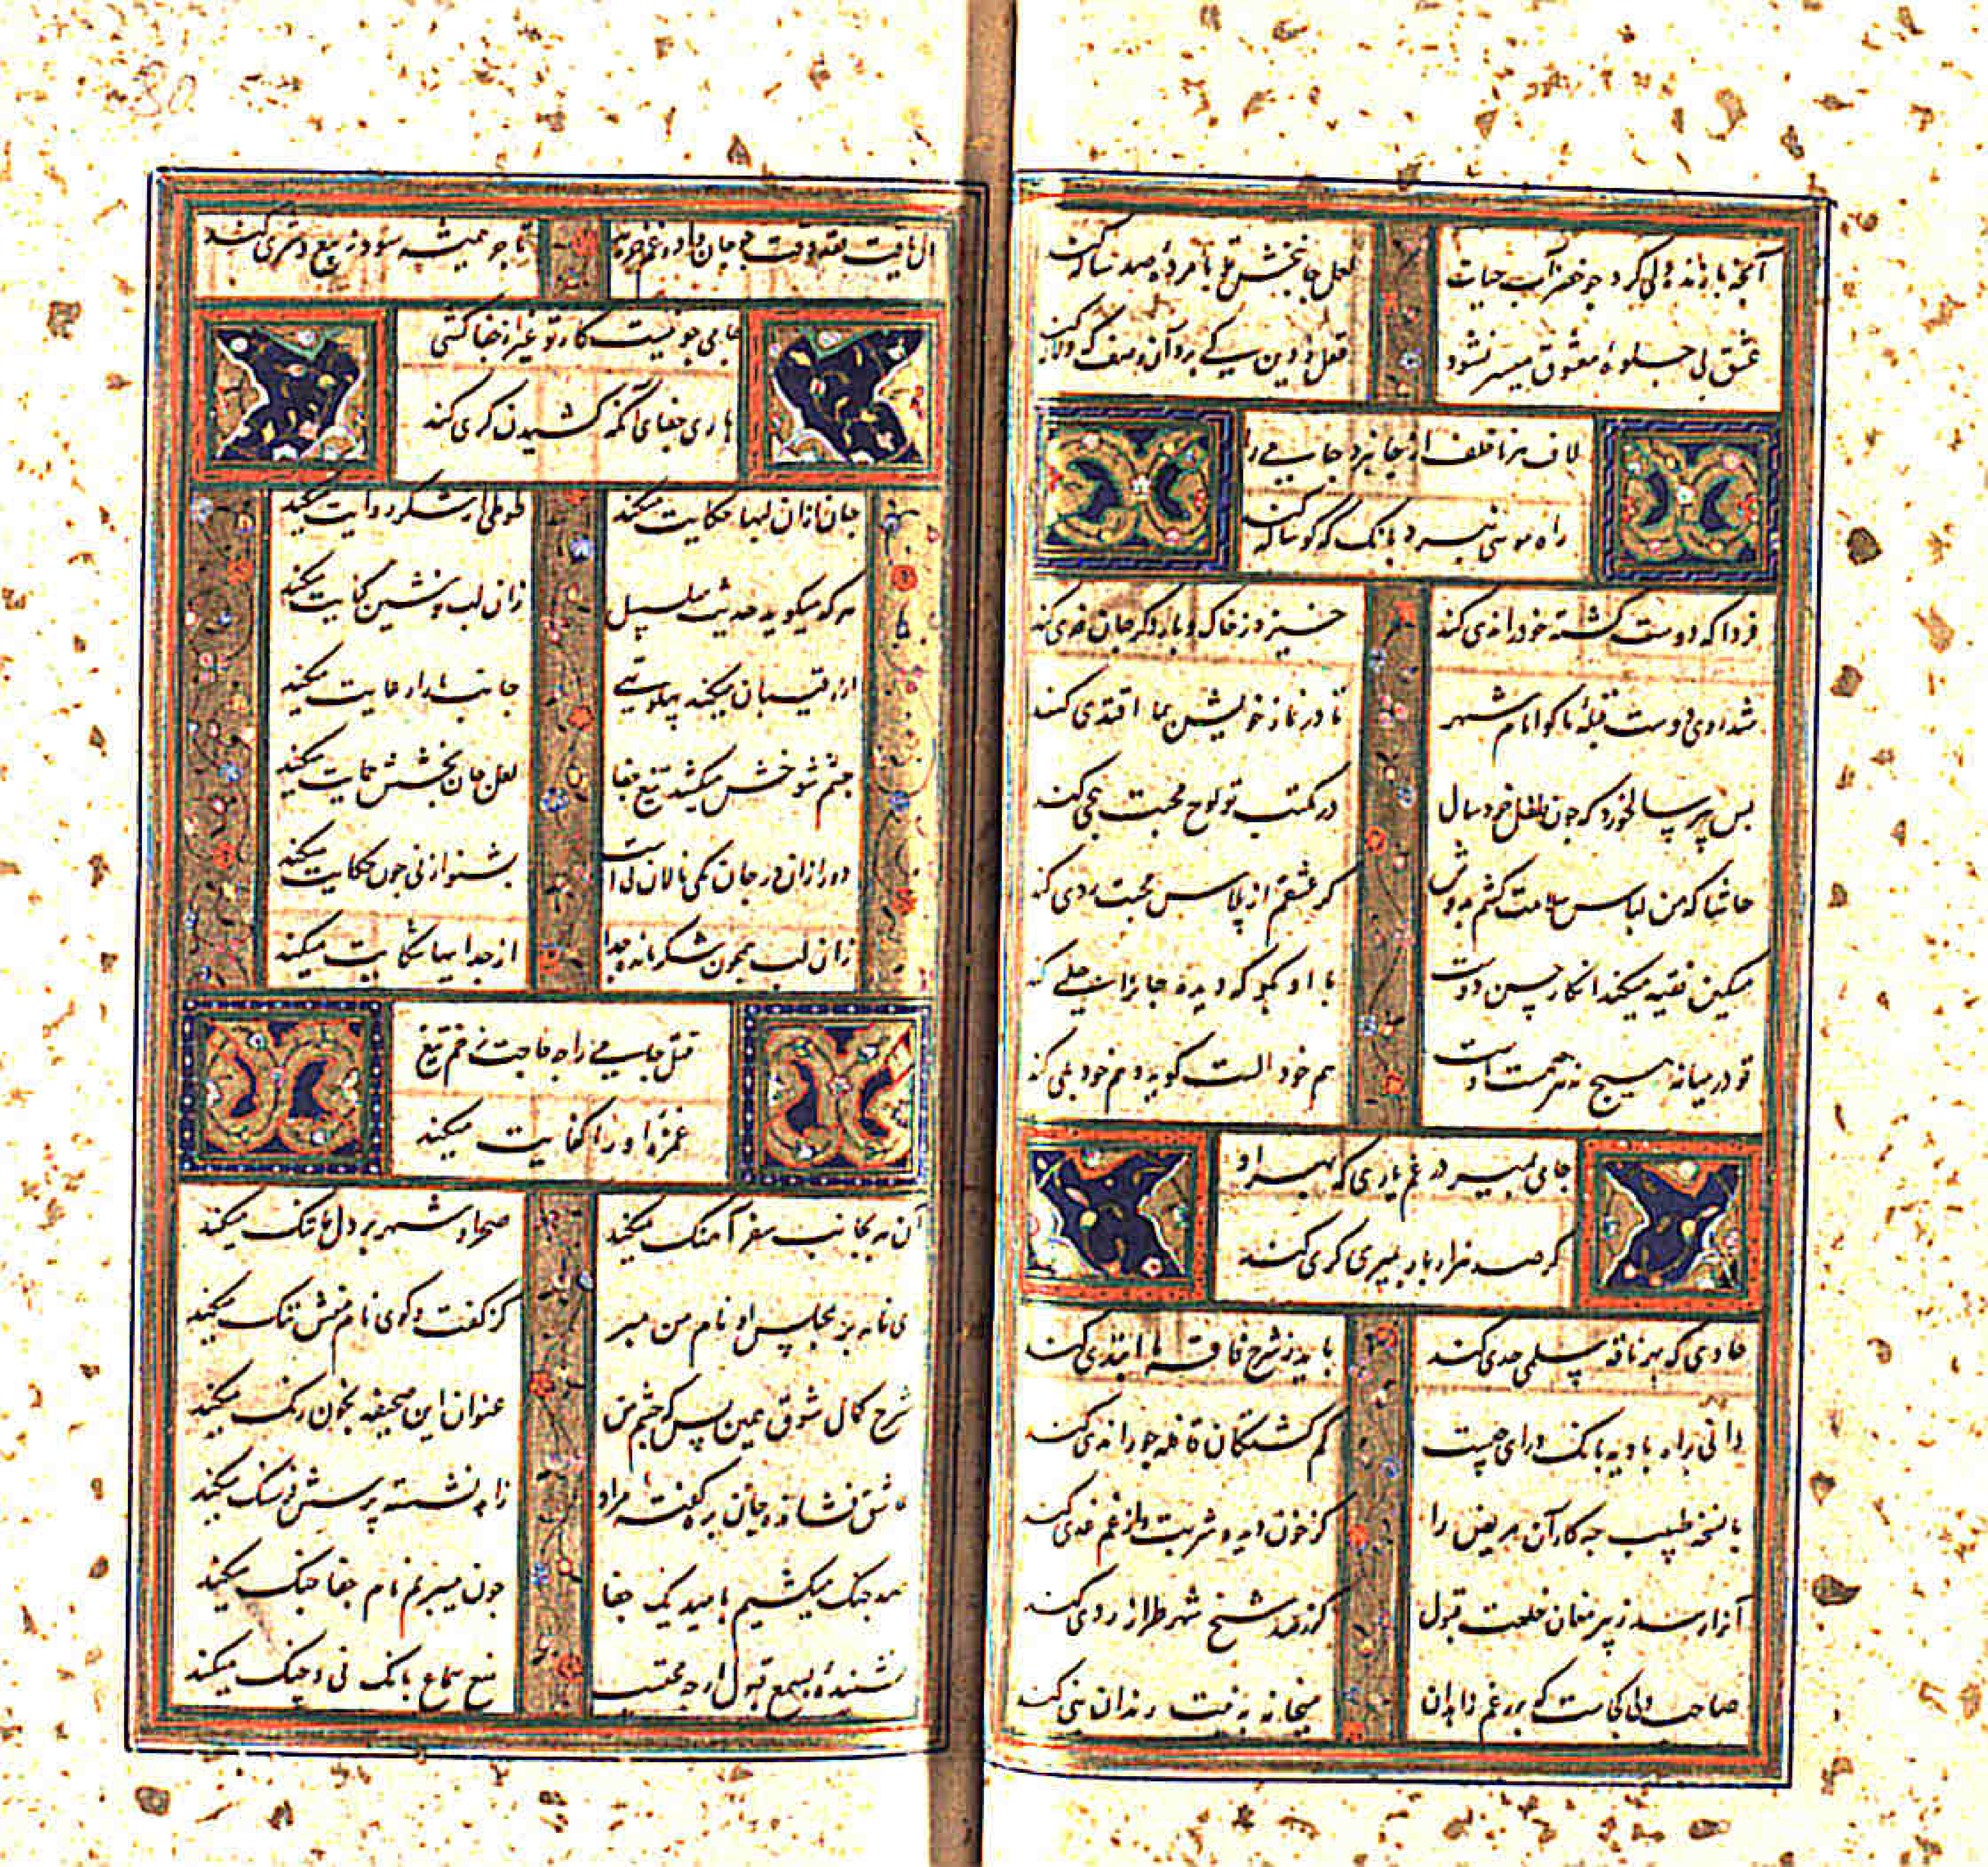 آنچه با زنده دلی کرد چو خضر آب حیات لعل جانبخش تو با مرده صد ساله کند
عشق بی جلوه معشوق میسر نشود
لاف هنر ناخلف از جا نبرد جامی را
راه موسی نبرد بانگ که گوساله کند
فردا که دوست کشته خود را ندی کند خیزد ز خاک و بار دگر جان فدی کند
شد روی دوست قبله ما کو امام شهر تا در نماز خویش بما اقتدی کند
بس پیر سالخورد که چون طفل خردسال در مکتب تو لوح محبت هجی کند
حاشا که من لباس سلامت کشم بدوش گر عشقم از پلاس محبت ردی کند
مسکین فقیه میکند انکار حسن دوست با او بگو که دیده جانرا جلی کند
تو در میانه هیچ نه هر چه هست اوست هم خود الست گوید و هم خود بلی کند
جامی بمیر در غم یاری که بهر او
گر صد هزار بار بمیری کری کند
حادی که بهر ناقه سلمی حدی کند باید ز شرح فاقه ما ابتدی کند
دانی براه بادیه بانگ درای چیست گم گشتگان قافله خود را ندی کند
با نسخه طبیب چه کار آن مریض را کز خون دیده شربت و از غم غدی کند
آنرا رسد ز پیر مغان خلعت قبول کز خرقه شیخ شهر طراز ردی کند
صاحب دلی کجاست که بر رغم زاهدان میخانه به نیت رندان بنی کند
تاجر همیشه سود ز بیع و شری کند
جامی چو نیست کار تو غیر از جفا کشی
باری جفای آنکه کشیدن کری کند
جان ازان لبها حکایت میکند طوطی از شکر روایت میکند
هر که میگوید حدیث سلسبیل زان لب نوشین کنایت میکند
از رقیبان میکند پهلو تهی جانب ما را رعایت میکند
چشم شوخش میکشد تیغ جفا لعل جان بخشش حمایت میکند
دور ازان در جان نمی نالان نی است بشنو از نی چون حکایت میکند
زان لب همچون شکر مانده جدا از جداییها شکایت میکند
قتل جامی را چه حاجت زخم تیغ
غمزه او را کفایت میکند
آن مه بجانب سفر آهنگ میکند صحرا و شهر بر دل ما تنگ میکند
ای نامه بر بمجلس او نام من مبر کز گفت و گوی نام منش ننگ میکند
شرح کمال شوق همین بس که چشم من عنوان این صحیفه بخون رنگ میکند
عاشق فشانده جان بره کعبه مراد زاهد نشسته پرسش فرسنگ میکند
صد جنگ میکشیم بامید یک جفا چون میبریم نام جفا جنگ میکند
نشنیده بسمع قبول ار چه محتسب منع سماع بانگ نی و چنگ میکند